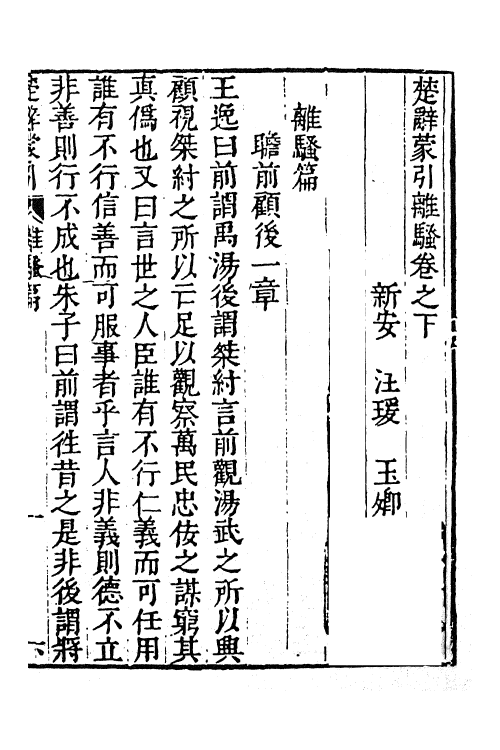 楚辭蒙引離騷卷之下
新安 汪瑗 玉卿
離騷篇
瞻前顧後一章
王逸曰前謂禹湯後謂桀紂言前觀湯武之所以興
顧視桀紂之所以亡足以觀察萬民忠佞之謀窮其
真僞也又曰言世之人臣誰有不行仁義而可任用
誰有不行信善而可服事者乎言人非義則德不立
非善則行不成也朱子曰前謂徃昔之是非後謂將
楚辭蒙引 離騷篇 一